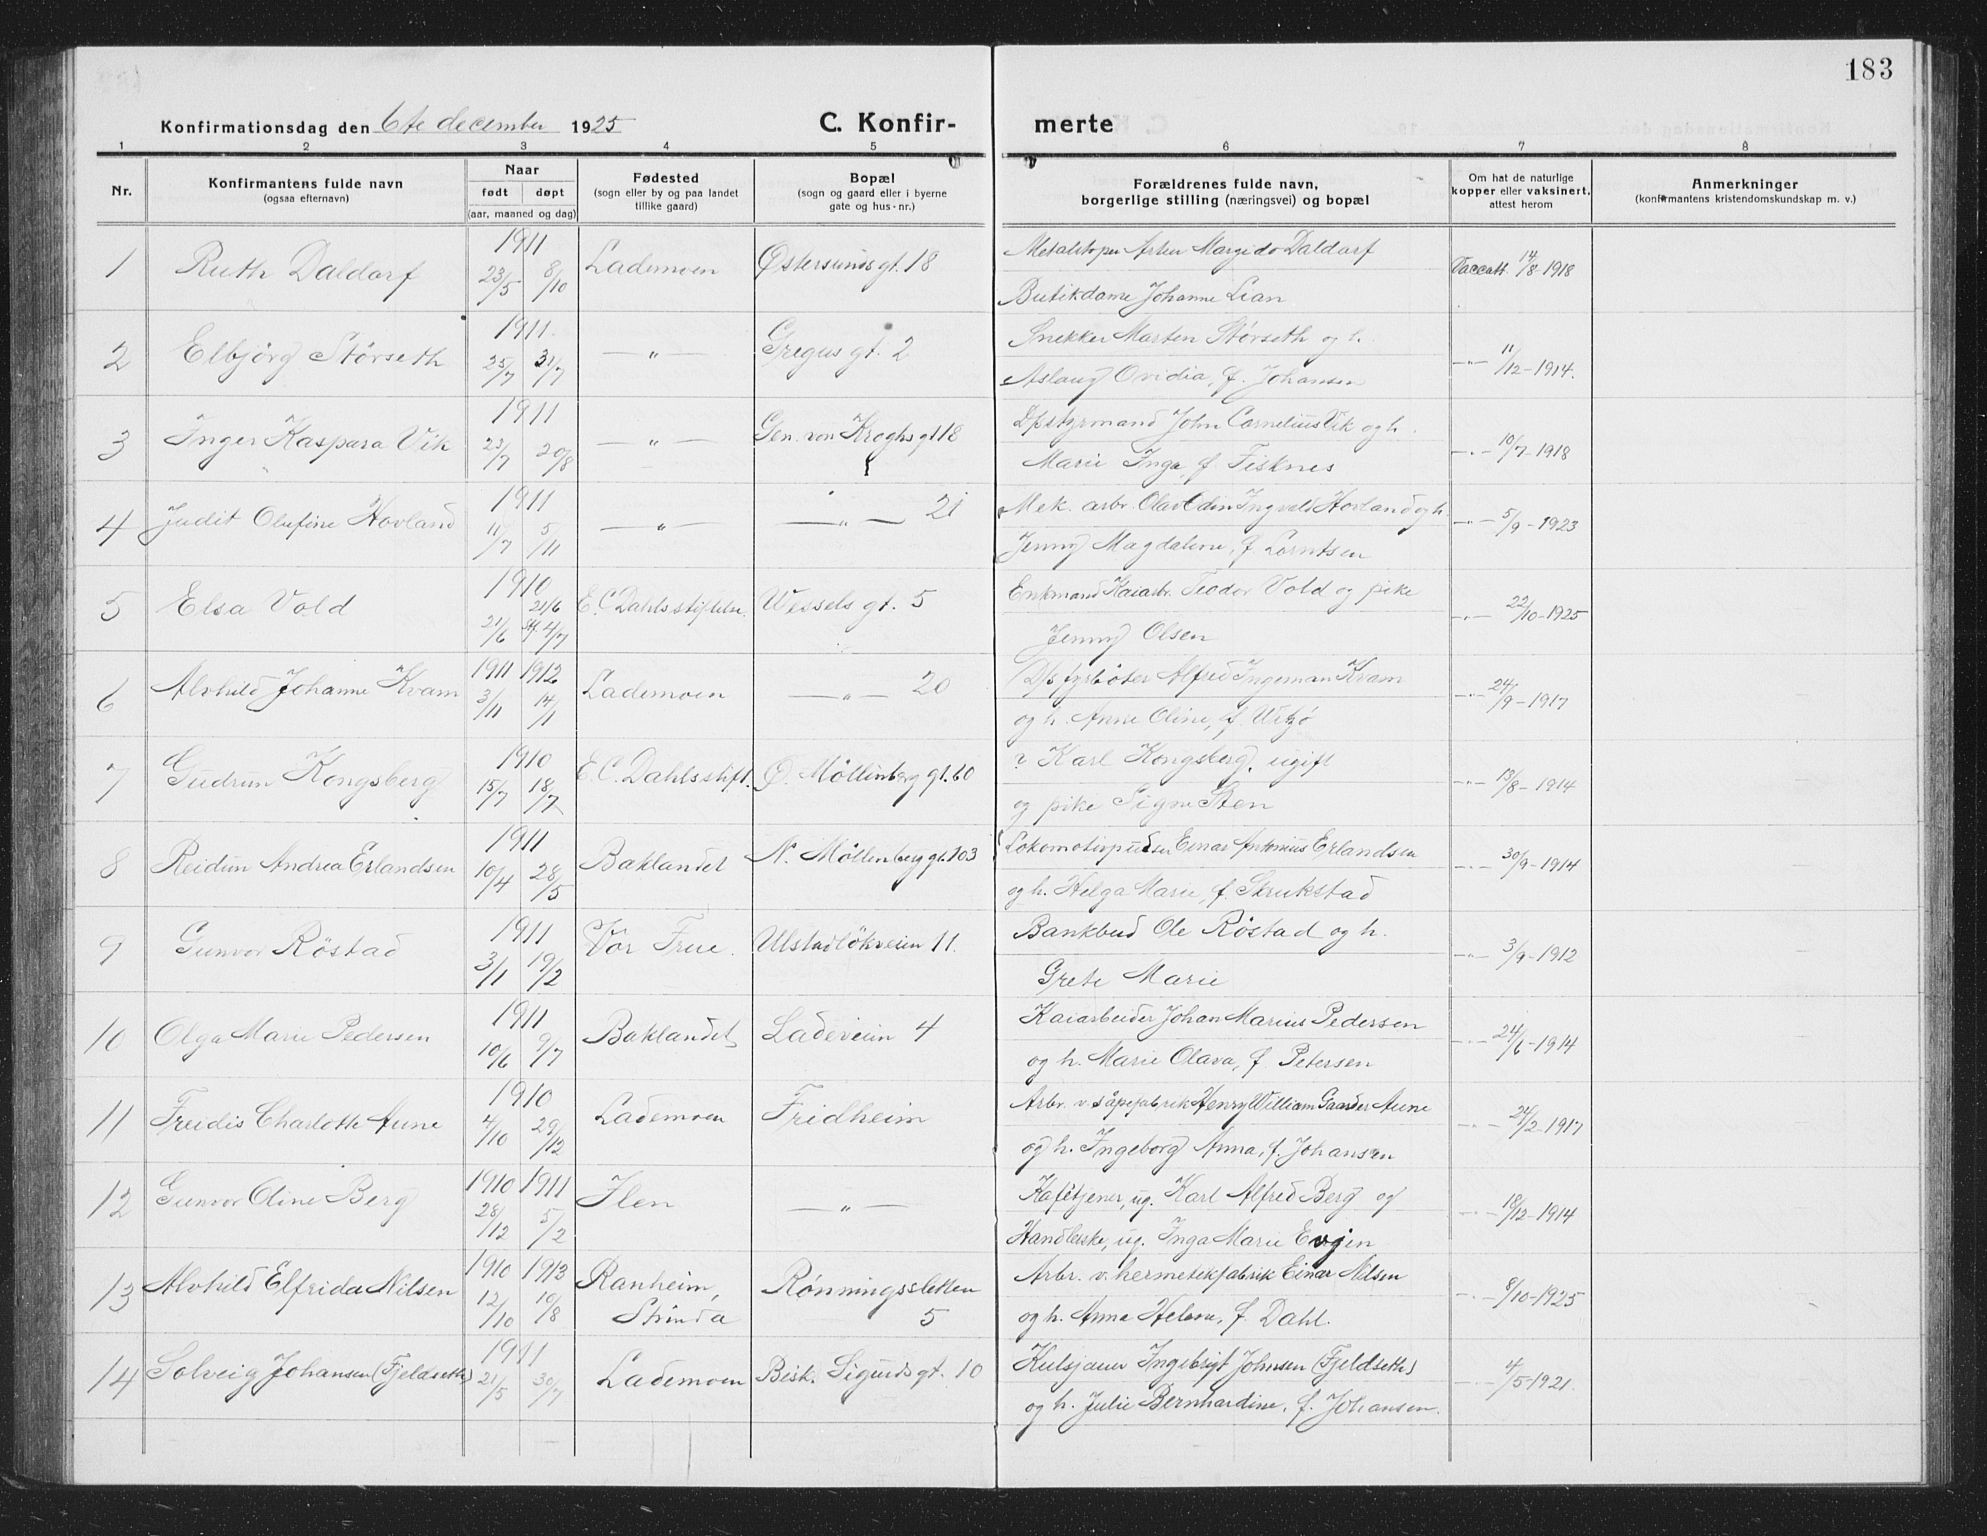 183
Konfirmationsdag den 6te december 1925 C. Konfir- merte
1 2 3 4 5 6 7 8
Nr. Konfirmantens fulde navn (ogsaa efternavn) Naar født døpt (aar, maaned og dag) Fødested (sogn eller by og paa landet tillike gaard) Bopæl (sogn og gaard eller i byerne gate og hus-nr.) Forældrenes fulde navn, borgerlige stilling (næringsvei) og bopæl Om hat de naturlige kopper eller vaksinert, attest herom Anmerkninger (konfirmantens kristendomskundskap m. v.)
1 Ruth Daldorf 1911 23/5 8/10 Lademoen Østersunds gt. 18 Metalstøper Margido Daldorf
Butikdame Johanne Lian Vaccatt. 14/8-1918
2 Elbjörg Störseth 1911 25/7 31/7 — " — Gregus gt. 2 Snekker Marten Störseth og h.
Aslaug Ovidia, f. Johansen — " — 11/12-1914.
3 Inger Kaspara Vik 1911 23/7 20/8 — " — Gen. von Kroghs gt 18 Dpstyrmand John Cornelius Vik og h.
Marie Inga, f. Fisknes — " — 10/7-1918
4 Judit Olufine Hovland 1911 11/7 5/11 — " — — " — 21 Mek. arbr. Olav Edin Ingvald Hovland og h.
Jenny Magdalene, f. Lorntsen — " — 5/9-1923
5 Elsa Vold 1910 21/6 21/6 4/7 E. C. Dahls stiftelse Wessels gt. 5 Enkmand Kaiarbr. Teodor Vold og pike
Jenny Olsen — " — 22/10-1925
6 Alvhild Johanne Kvam 1911 1912 3/11 14/1 Lademoen — " — 20 D/s fyrböter Alfred Ingeman Kvam
og h. Anne Oline, f. Utzö — " — 24/9-1917
7 Gudrun Kongsberg 1910 15/7 18/7 E. C. Dahls stift. Ø. Möllenberg gt. 60 ? Karl Kongsberg, ugift
og pike Signe Sten — " — 13/8-1914
8 Reidun Andrea Erlandsen 1911 10/4 28/5 Baklandet N. Möllenberg gt. 103 Lokomotivpudser Einar Antonius Erlandsen
og h. Helga Marie, f. Skrukstad — " — 30/9-1914
9 Gunvor Röstad 1911 3/1 19/2 Vor Frue. Ulstadlökveien 11. Bankbud Ole Röstad og h.
Grete Marie — " — 3/9-1912
10 Olga Marie Pedersen 1911 10/6 9/7 Baklandet Ladeveien 4 Kaiarbeider Johan Marius Pedersen
og h. Marie Olava, f. Petersen — " — 24/6-1914
11 Freidis Charlotte Aune 1910 4/10 29/12 Lademoen Fridheim Arbr. v. såpefabrik Henry William Gaarder Aune
og h. Ingeborg Anna, f. Johansen — " — 24/2-1917
12 Gunvor Oline Berg 1910 1911 28/12 5/2 Ilen — " — Kafétjener, ug. Karl Alfred Berg og
Handlerske, ug. Inga Marie Evjen — " — 18/12-1914
13 Alvhild Elfrida Nilsen 1910 1913 12/10 10/8 Ranheim, Strinda Rønningssletten 5 Arbr. v. hermetikfabrik Einar Nilsen
og h. Anna Helene, f. Dahl. — " — 8/10-1925
14 Solveig Johansen (Fjeldseth) 1911 21/5 30/7 Lademoen Bisk. Sigurds gt. 10 Kulsjauer Ingebrigt Johnsen (Fjeldseth)
og h. Julie Bernhardine, f. Johansen. — " — 4/5-1921.